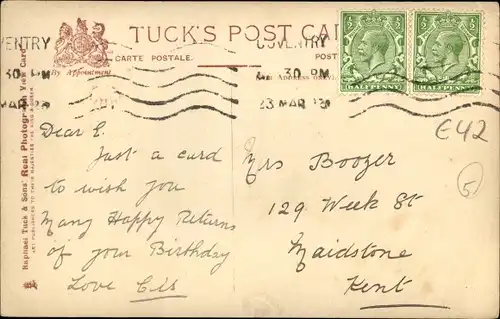 TUCK'S POST CAR
CARTE POSTALE.
POST
By Appointment
ADDRESS
COVENTRY
30 PM
23 MAR
VENTRY
30 PM
MAR
HALFPENNY
HALFPENNY
Raphael Tuck & Sons' Real Photograph View Card
ART PUBLISHERS TO THEIR MAJESTIES THE KING & QUEEN.
Dear E.
Just a card
to wish you
Many Happy Returns
of your Birthday
Love Cis
Mrs Boozer
129 Week St
Maidstone
Kent
E42
5